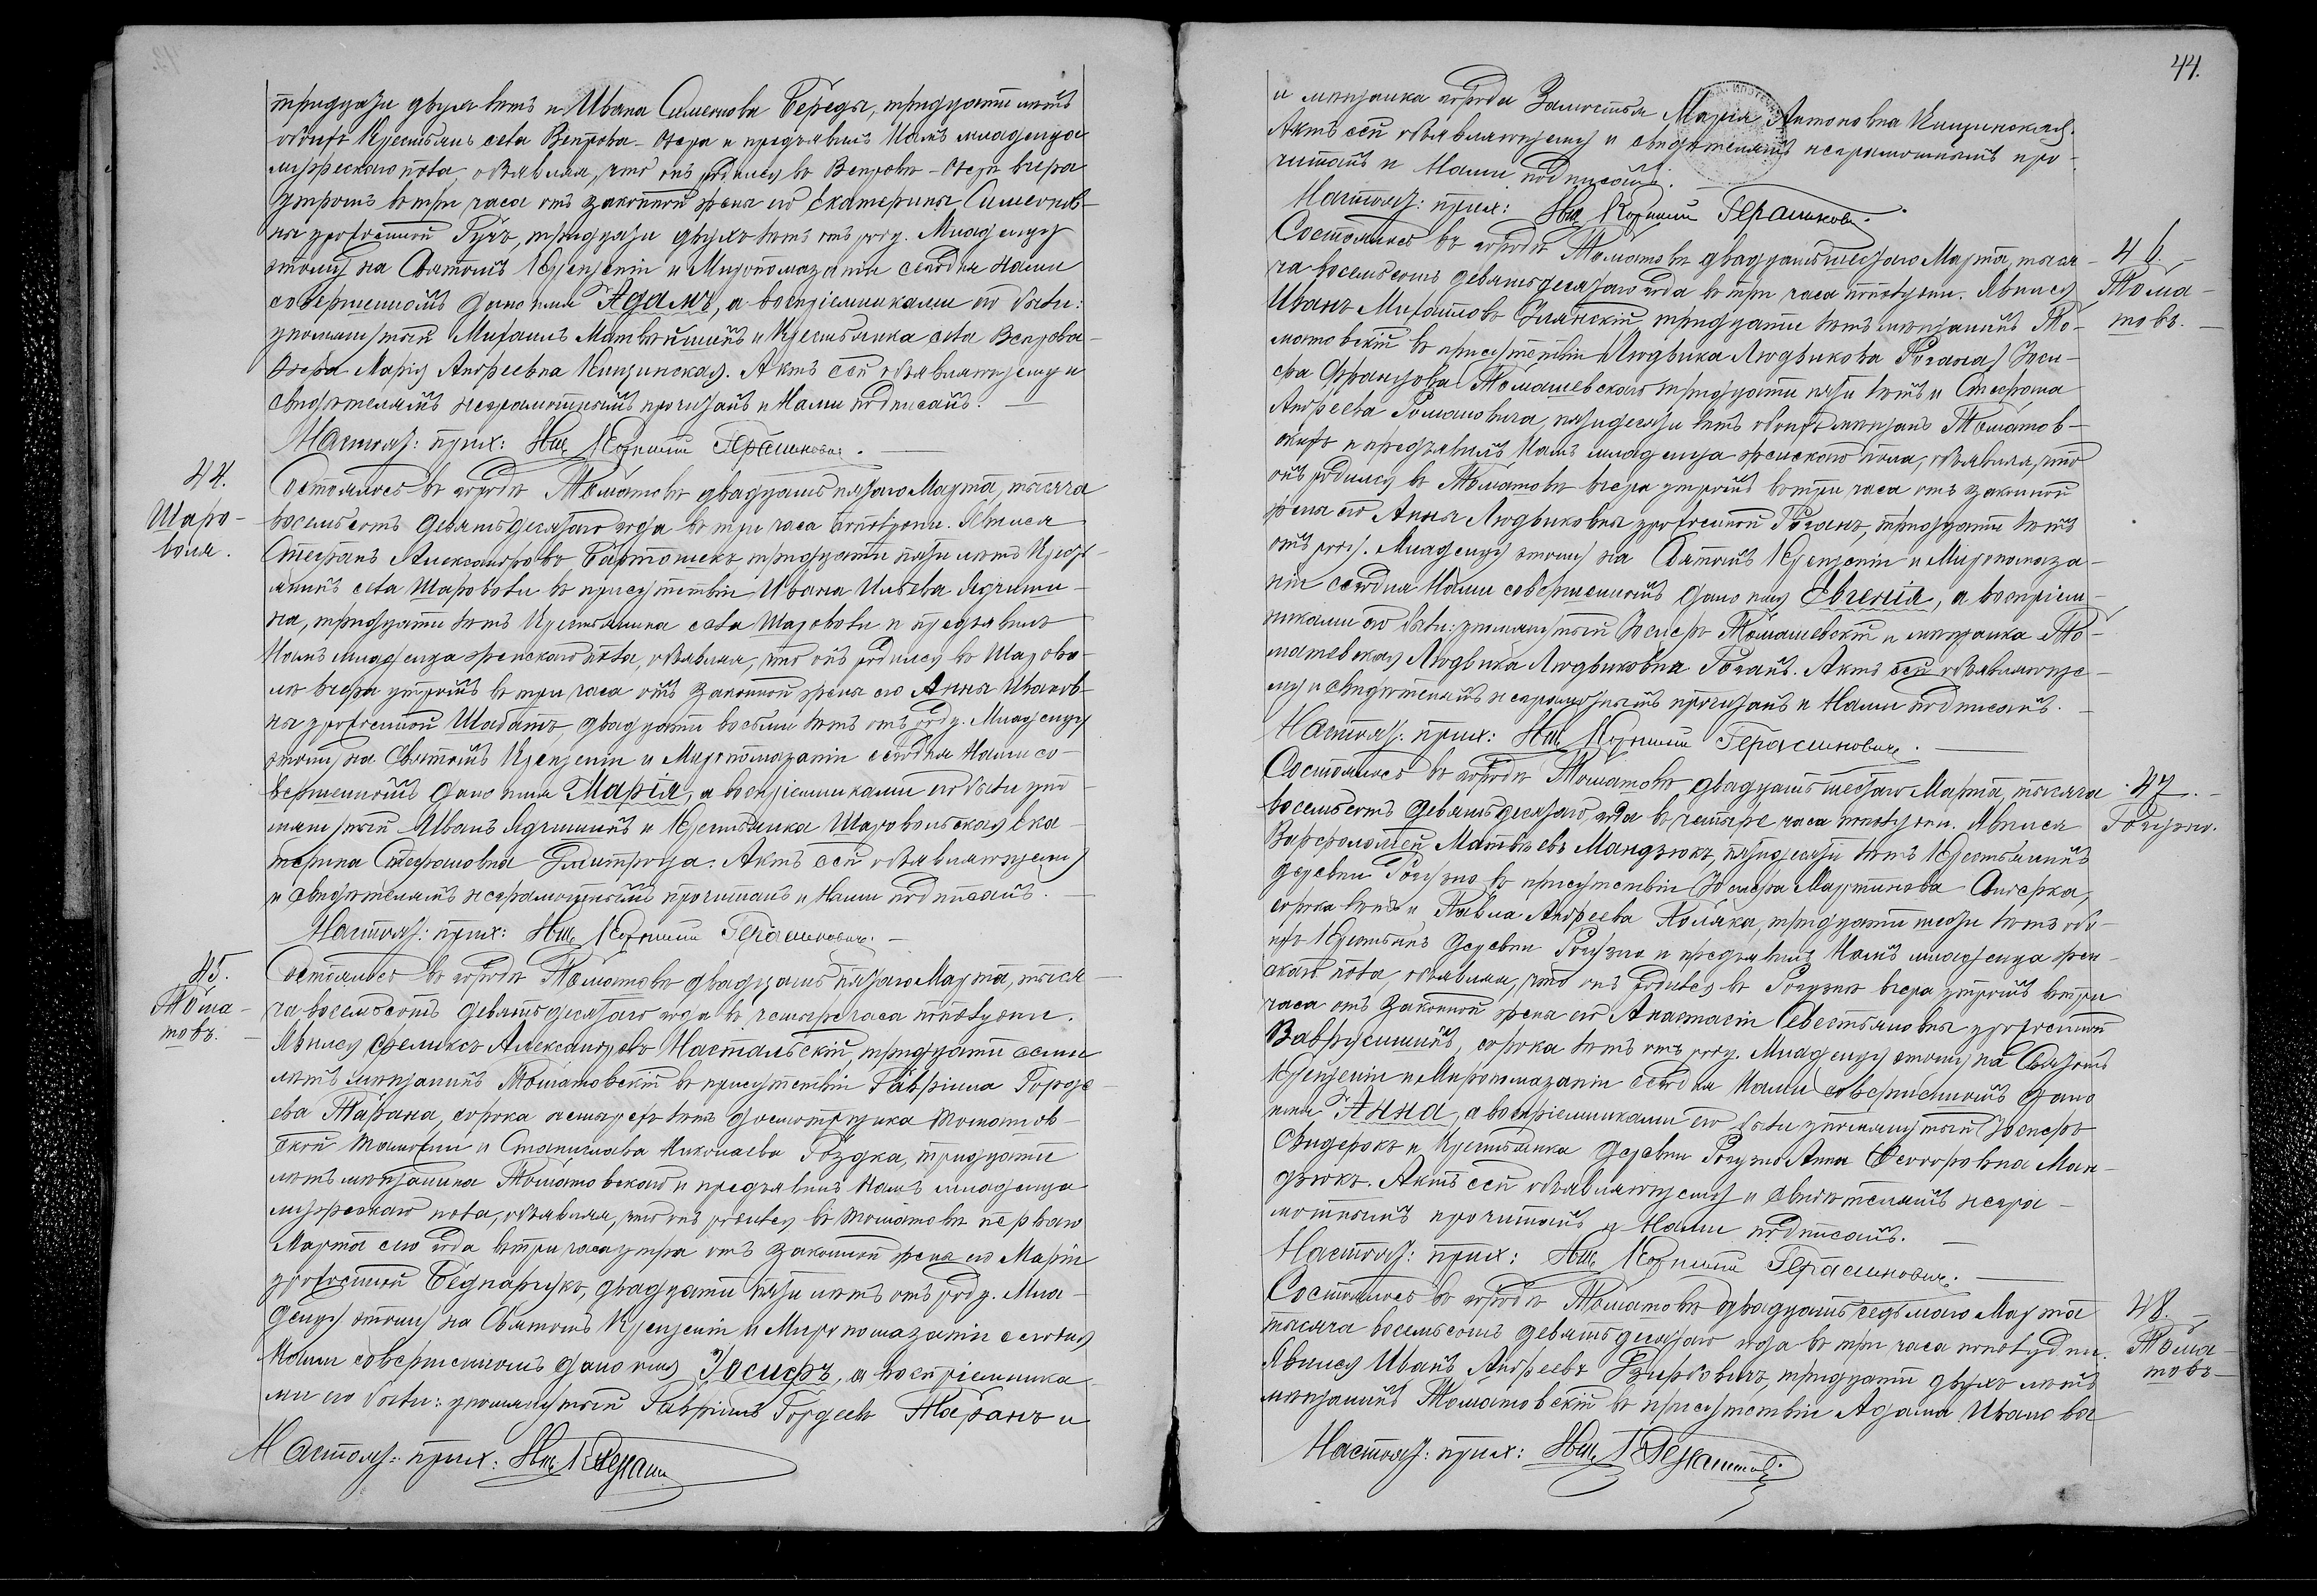 тридцати двухъ лѣтъ и Ивана Симеонова Береды, тридцати лѣтъ
обоихъ Крестьянъ села Вепрова-Озера и предъявилъ Намъ младенца
мужескаго пола, объявляя, что онъ родился въ Вепровѣ-Озерѣ вчера
утромъ въ три часа отъ законной жены его Екатерины Симеонов-
ны урожденной Гучъ, тридцати двухъ лѣтъ отъ роду. Младенцу
этому на Святомъ Крещеніи и Миропомазаніи сегодня Нами
совершенномъ дано имя Адамъ, а воспріемниками его были:
упомянутый Михаилъ и Крестьянка села Вепрова-
Озера Марія Андреевна Кищинская. Актъ сей объявляющему и
свидѣтелямъ неграмотнымъ прочитанъ и Нами подписанъ. —
Настоят: прих: Корнилій Герасимовичъ.
44.
Шаро-
воля.
Состоялось въ городѣ Томашовѣ двадцать пятаго Марта, тысяча
восемьсотъ девятьдесятаго года въ три часа пополудни. Явился
Стефанъ Александровъ Бартошекъ, тридцати пяти лѣтъ Кресть-
янинъ села Шароволи въ присутствіи Ивана Ильева Ядчиши-
на, тридцати лѣтъ Крестьянина села Шароволи и предъявилъ
Намъ младенца женскаго пола, объявляя, что онъ родился въ Шарово-
лѣ вчера утромъ въ три часа отъ законной жены его Анны Иванов-
ны урожденной Шабатъ, двадцати восьми лѣтъ отъ роду. Младенцу
этому на Святомъ Крещеніи и Миропомазаніи сегодня Нами со-
вершенномъ дано имя Марія, а воспріемниками его были упо-
мянутый Иванъ Ядчишинъ и Крестьянка Шаровольская Ека-
терина Стефановна Дмитроца. Актъ сей объявляющему
и свидѣтелямъ неграмотнымъ прочитанъ и Нами подписанъ. —
Настоят: прих: Корнилій Герасимовичъ. —
45.
Тома-
шовъ.
Состоялось въ городѣ Томашовѣ двадцать пятаго Марта, тыся-
ча восемьсотъ девятьдесятаго года въ четыре часа пополудни.
Явился Феликсъ Александровъ Настальскій, тридцати осьми
лѣтъ мѣщанинъ Томашовскій въ присутствіи Гавріила Горде-
ева Тарана, сорока четырехъ лѣтъ досмотрщика Томашов-
ской таможни и Станислава Николаева Гоздка, тридцати
лѣтъ мѣщанина Томашовскаго и предъявилъ Намъ младенца
мужескаго пола, объявляя, что онъ родился въ Томашовѣ перваго
Марта сего года въ три часа утра отъ законной жены его Маріи
урожденной Беднарчукъ, двадцати пяти лѣтъ отъ роду. Мла-
денцу этому на Святомъ Крещеніи и Миропомазаніи сегодня
Нами совершенномъ дано имя Іосифъ, а воспріемника-
ми его были: упомянутый Гавріилъ Гордеевъ Таранъ и
Настоят: прих:
44.
и мѣщанка города Замостья Марія Антоновна Кищинская.
Актъ сей объявляющему и свидѣтелямъ неграмотнымъ про-
читанъ и Нами подписанъ. —
Настоят: прих: Корнилій Герасимовичъ.
46.
Тома-
шовъ. —
Состоялось въ городѣ Томашовѣ двадцать шестаго Марта, тыся-
ча восемьсотъ девятьдесятаго года въ три часа пополудни. Явился
Иванъ Михайловъ тридцати лѣтъ мѣщанинъ То-
машовскій въ присутствіи Людвика Людвикова Рогана, Іоси-
фа Францова Томашевскаго тридцати пяти лѣтъ и Стефана
Андреева Романовича, пятидесяти лѣтъ обоихъ мѣщанъ Томашов-
скихъ и предъявилъ Намъ младенца женскаго пола, объявляя, что
онъ родился въ Томашовѣ вчера утромъ въ три часа отъ законной
жены его Анны Людвиковны урожденной Роганъ, тридцати лѣтъ
отъ роду. Младенцу этому на Святомъ Крещеніи и Миропомаза-
ніи сегодня Нами совершенномъ дано имя Евгенія, а воспріем-
никами его были: упомянутый Іосифъ Томашевскій и мѣщанка То-
машевская Людвика Людвиковна Роганъ. Актъ сей объявляюще-
му и свидѣтелямъ неграмотнымъ прочитанъ и Нами подписанъ. —
Настоят: прих: Корнилій Герасимовичъ. —
47. —
Рогузно.
Состоялось въ городѣ Томашовѣ двадцать шестаго Марта, тысяча
восемьсотъ девятьдесятаго года въ четыре часа пополудни. Явился
Варфоломей Матвѣевъ Мандзюкъ, пятидесяти лѣтъ Крестьянинъ
деревни Рогузно въ присутствіи Іосифа Мартинова Свидерка,
сорока лѣтъ и Павла Андреева Поляка, тридцати шести лѣтъ обо-
ихъ Крестьянъ деревни Рогузно и предъявилъ Намъ младенца жен-
скаго пола, объявляя, что онъ родился въ Рогузнѣ вчера утромъ въ три
часа отъ законной жены его Анастасіи Севестьяновны урожденной
Ваврусишинъ, сорока лѣтъ отъ роду. Младенцу этому на Святомъ
Крещеніи и Миропомазаніи сегодня Нами совершенномъ дано
имя Анна, а воспріемниками его были упомянутый Іосифъ
Свидерокъ и Крестьянка деревни Рогузно Анна Ѳеодоровна Ман-
дзюкъ. Актъ сей объявляющему и свидѣтелямъ негра-
мотнымъ прочитанъ и Нами подписанъ. —
Настоят: прих: Корнилій Герасимовичъ. —
48. —
Тома-
шовъ —
Состоялось въ городѣ Томашовѣ двадцать седьмаго Марта
тысяча восемьсотъ девятьдесятаго года въ три часа пополудни.
Явился Иванъ Андреевъ тридцати двухъ лѣтъ
мѣщанинъ Томашовскій въ присутствіи Адама Иванова
Настоят: прих: